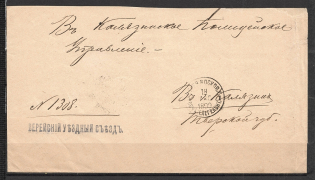 Въ Калязинское Полицейское
Управленіе. —
Въ Калязинъ
Тверской губ.
№ 1308.
ВЕРЕЙСКІЙ УѢЗДНЫЙ СЪѢЗДЪ.